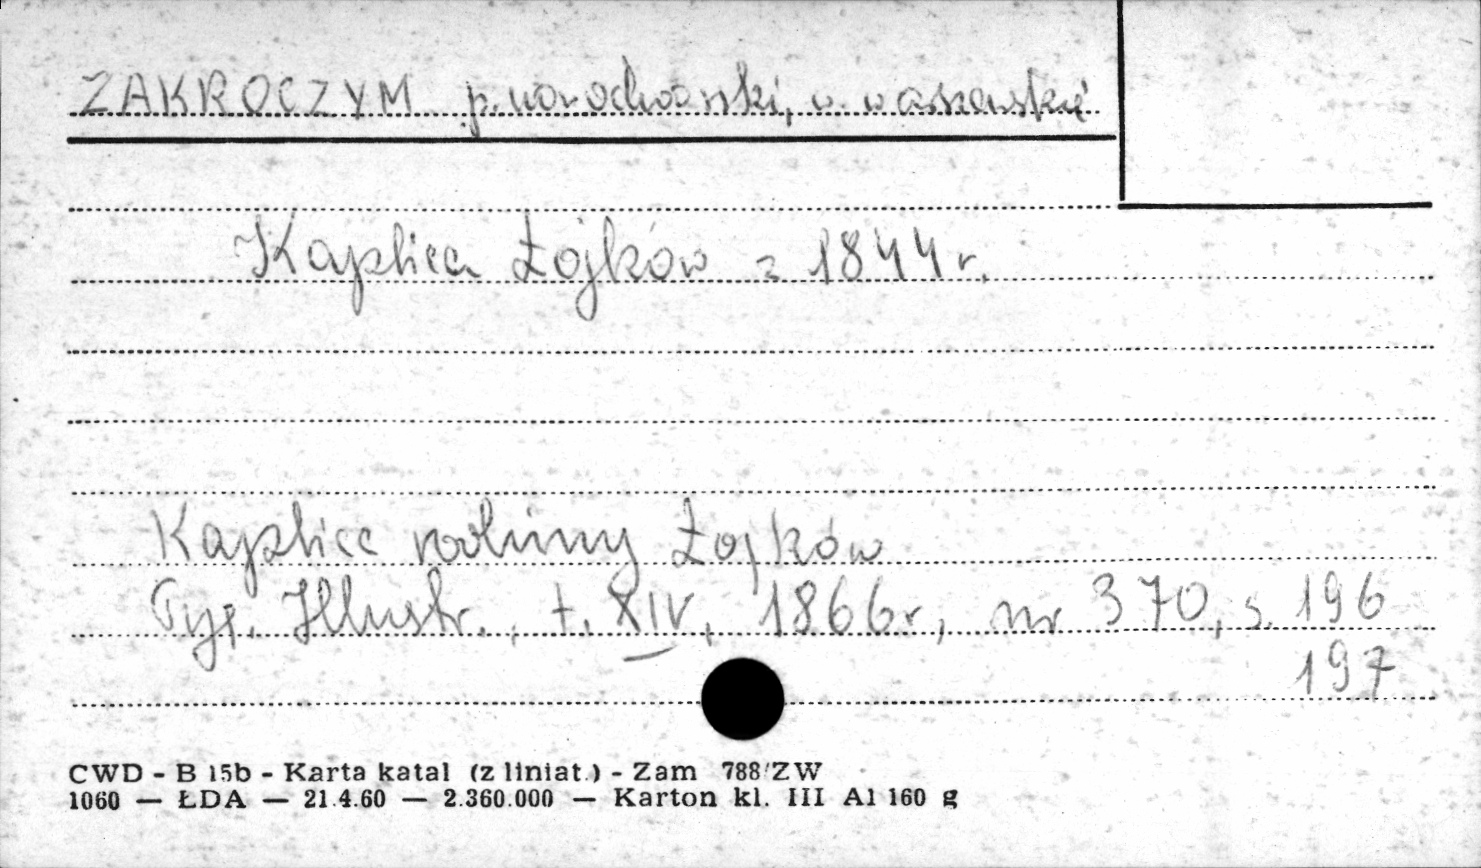 ZAKROCZYM p. nowodworski, w. warszawskie
Kaplica Łojków z 1844 r.
Kaplica rodziny Łojków
Tyg. Illustr., t. XIV, 1866 r, nr 370, s. 196
197
CWD - B 15b - Karta katal (z liniat.) - Zam 788/ZW
1060 — ŁDA — 21.4.60 — 2.360.000 — Karton kl. III A1 160 g